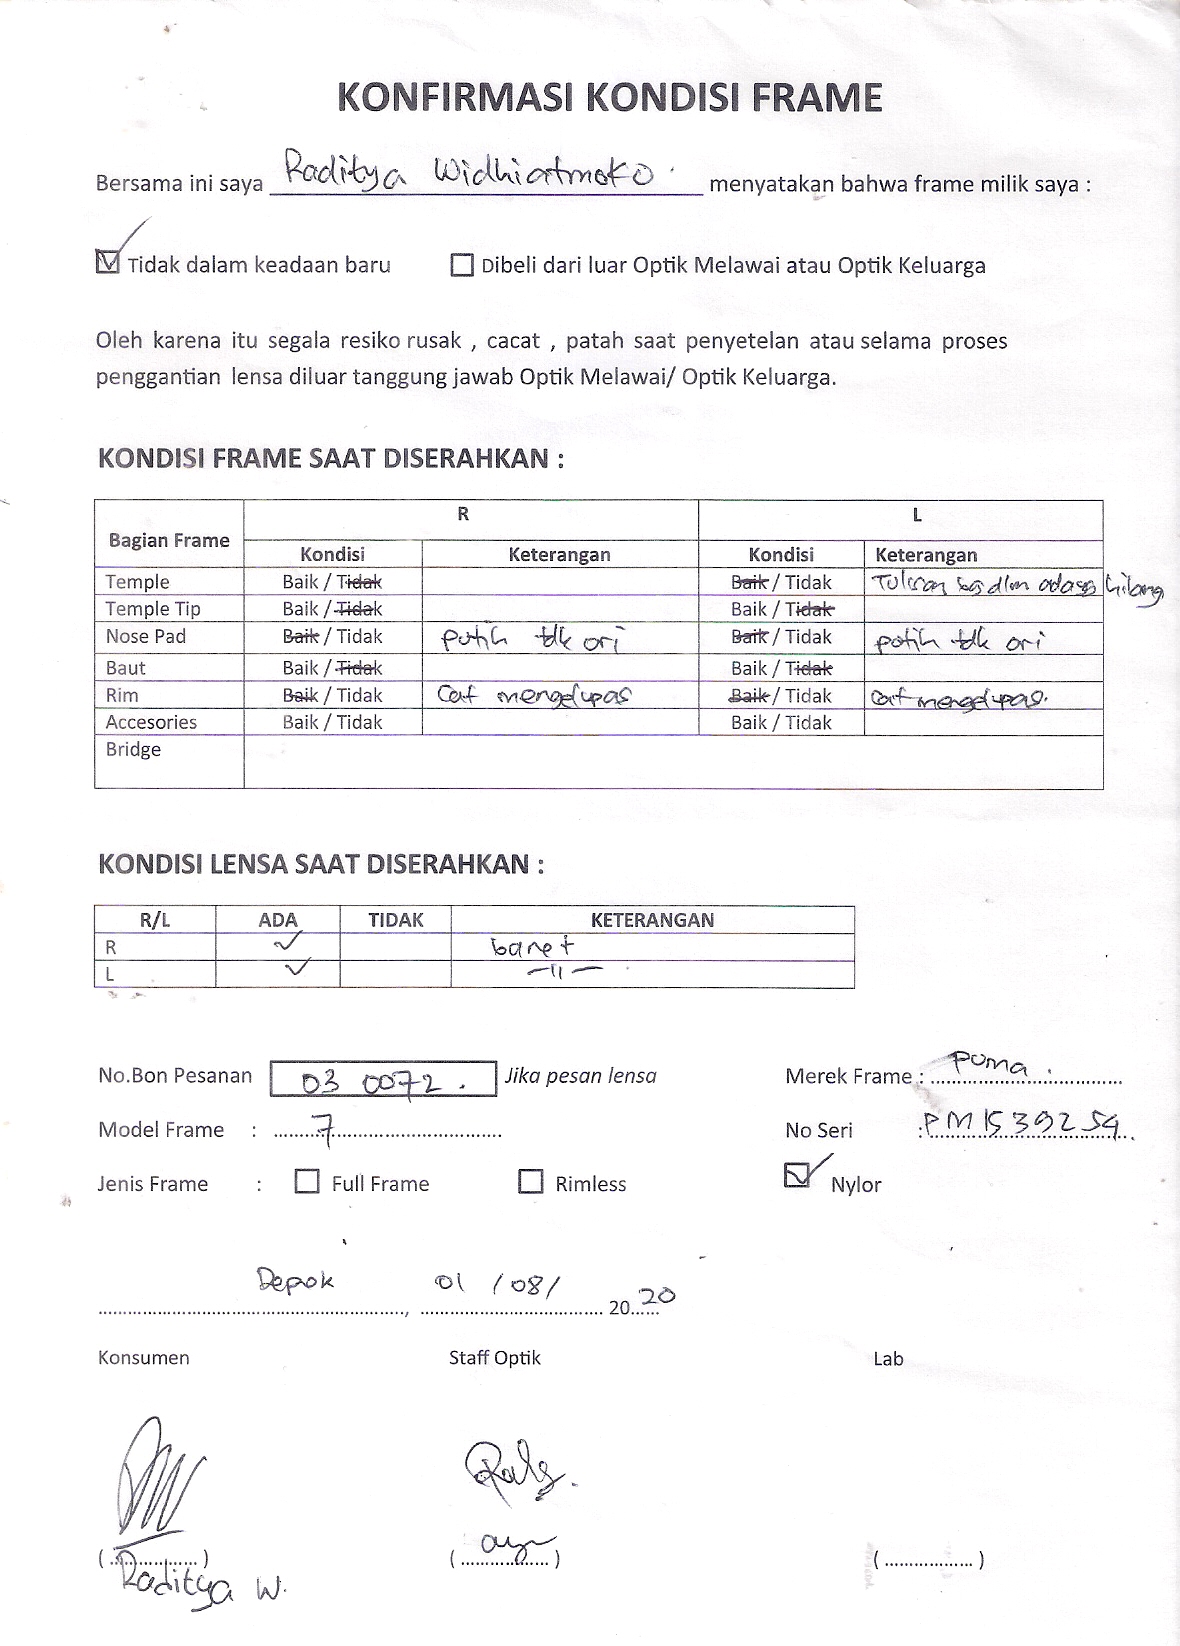 KONFIRMASI KONDISI FRAME
Bersama ini saya Raditya Widhiatmoko menyatakan bahwa frame milik saya :
Tidak dalam keadaan baru Dibeli dari luar Optik Melawai atau Optik Keluarga
Oleh karena itu segala resiko rusak , cacat , patah saat penyetelan atau selama proses
penggantian lensa diluar tanggung jawab Optik Melawai/ Optik Keluarga.
KONDISI FRAME SAAT DISERAHKAN :
Bagian Frame R L
Kondisi Keterangan Kondisi Keterangan
Temple Baik / Tidak Baik / Tidak Tulisan hilang
Temple Tip Baik / Tidak Baik / Tidak
Nose Pad Baik / Tidak putih tdk ori Baik / Tidak putih tdk ori
Baut Baik / Tidak Baik / Tidak
Rim Baik / Tidak Cat mengelupas Baik / Tidak Cat mengelupas.
Accesories Baik / Tidak Baik / Tidak
Bridge
KONDISI LENSA SAAT DISERAHKAN :
R/L ADA TIDAK KETERANGAN
R ✓ baret
L ✓ –||–
No.Bon Pesanan 03 0072. Jika pesan lensa Merek Frame : Puma.
Model Frame : 7 No Seri : PM15392S4
Jenis Frame : Full Frame Rimless Nylor
Depok, 01 /08/ 2020
Konsumen Staff Optik Lab
(..................) (..................) (..................)
Raditya W.